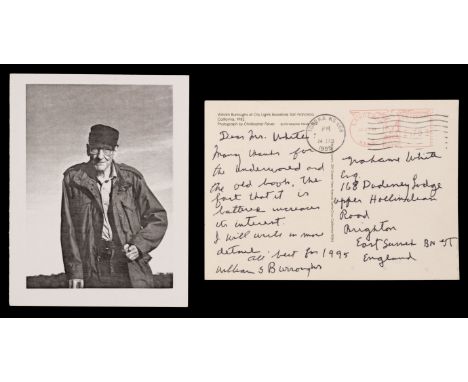 William Burroughs at City Lights Bookstore San Francisco
California, 1982
Photograph by Christopher Felver
TOPEKA KS
PM
1995
Dear Mr. White
Many thanks for
the underword and
the old book. The
fact that it is
battered increases
its interest.
I will write in more
detail
All best for 1995
William S Burroughs
Grahame White
Esq
168 Dudeney Lodge
upper Hollingdean
Road
Brighton
East Sussex BN
England